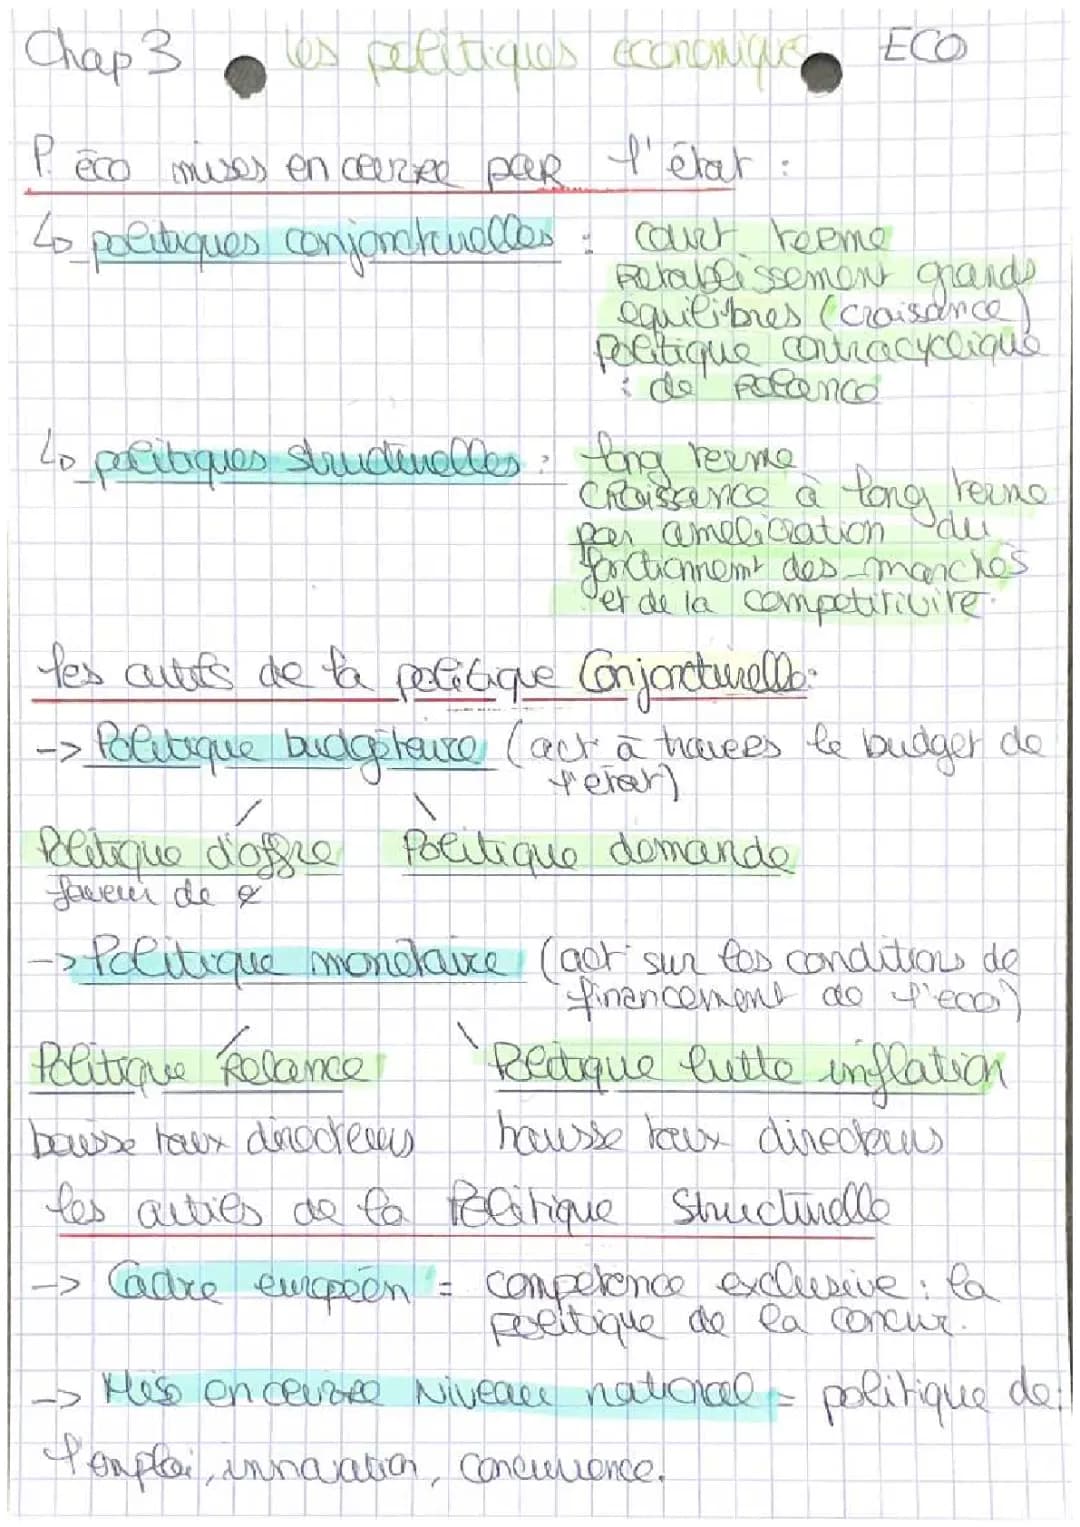 Chap 3 les politiques économiques ECO
P. éco mises en œuvre par l'état :
↳ politiques conjoncturelles : court terme
Rétablissement grands
équilibres (croisance)
politique contracyclique
: de relance
↳ politiques structurelles : long terme
croissance à long terme
par amélioration du
fonctionnemt des marchés
et de la compétitivité.
les outils de la politique Conjoncturelle :
-> Politique budgétaire (act à travers le budget de
l'état)
Politique d'offre Politique demande
faveur de
-> Politique monétaire (act sur les conditions de
financement de l'éco)
Politique Relance Politique lutte inflation
baisse taux directeurs hausse taux directeurs
les outils de la Politique Structurelle
-> Cadre européen = compétence exclusive : la
politique de la concur.
-> Mise en œuvre Niveau national = politique de :
l'emploi, innovation, concurrence.